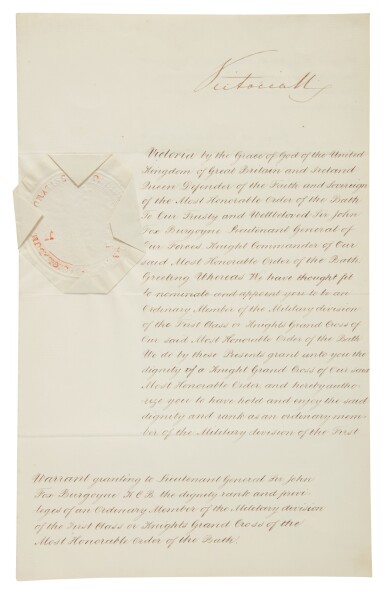 Victoria R
Victoria by the Grace of God of the United
Kingdom of Great Britain and Ireland
Queen Defender of the Faith and Sovereign
of the Most Honorable Order of the Bath
To Our Trusty and Wellbeloved Sir John
Fox Burgoyne Lieutenant General of
Our Forces Knight Commander of Our
said Most Honorable Order of the Bath.
Greeting Whereas We have thought fit
to nominate and appoint you to be an
Ordinary Member of the Military division
of the First Class or Knights Grand Cross of
Our said Most Honorable Order of the Bath
We do by these Presents grant unto you the
dignity of a Knight Grand Cross of Our said
Most Honorable Order and hereby autho-
rize you to have hold and enjoy the said
dignity and rank as an ordinary mem-
ber of the Military division of the First
Warrant granting to Lieutenant General Sir John
Fox Burgoyne K.C.B. the dignity rank and privi-
leges of an Ordinary Member of the Military division
of the First Class or Knights Grand Cross of the
Most Honorable Order of the Bath.